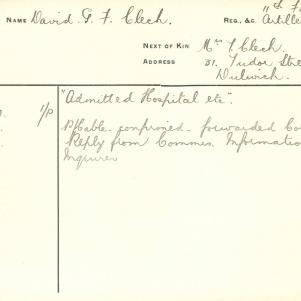 NAME David G. F. Clech. REG., &C. Artille
NEXT OF KIN Mr Clech.
ADDRESS 31. Tudor Stre
Dulwich.
1/P "Admitted Hospital etc".
P/Cable confirmed - forwarded Co
Reply from Commen. Informatio
Inquirer